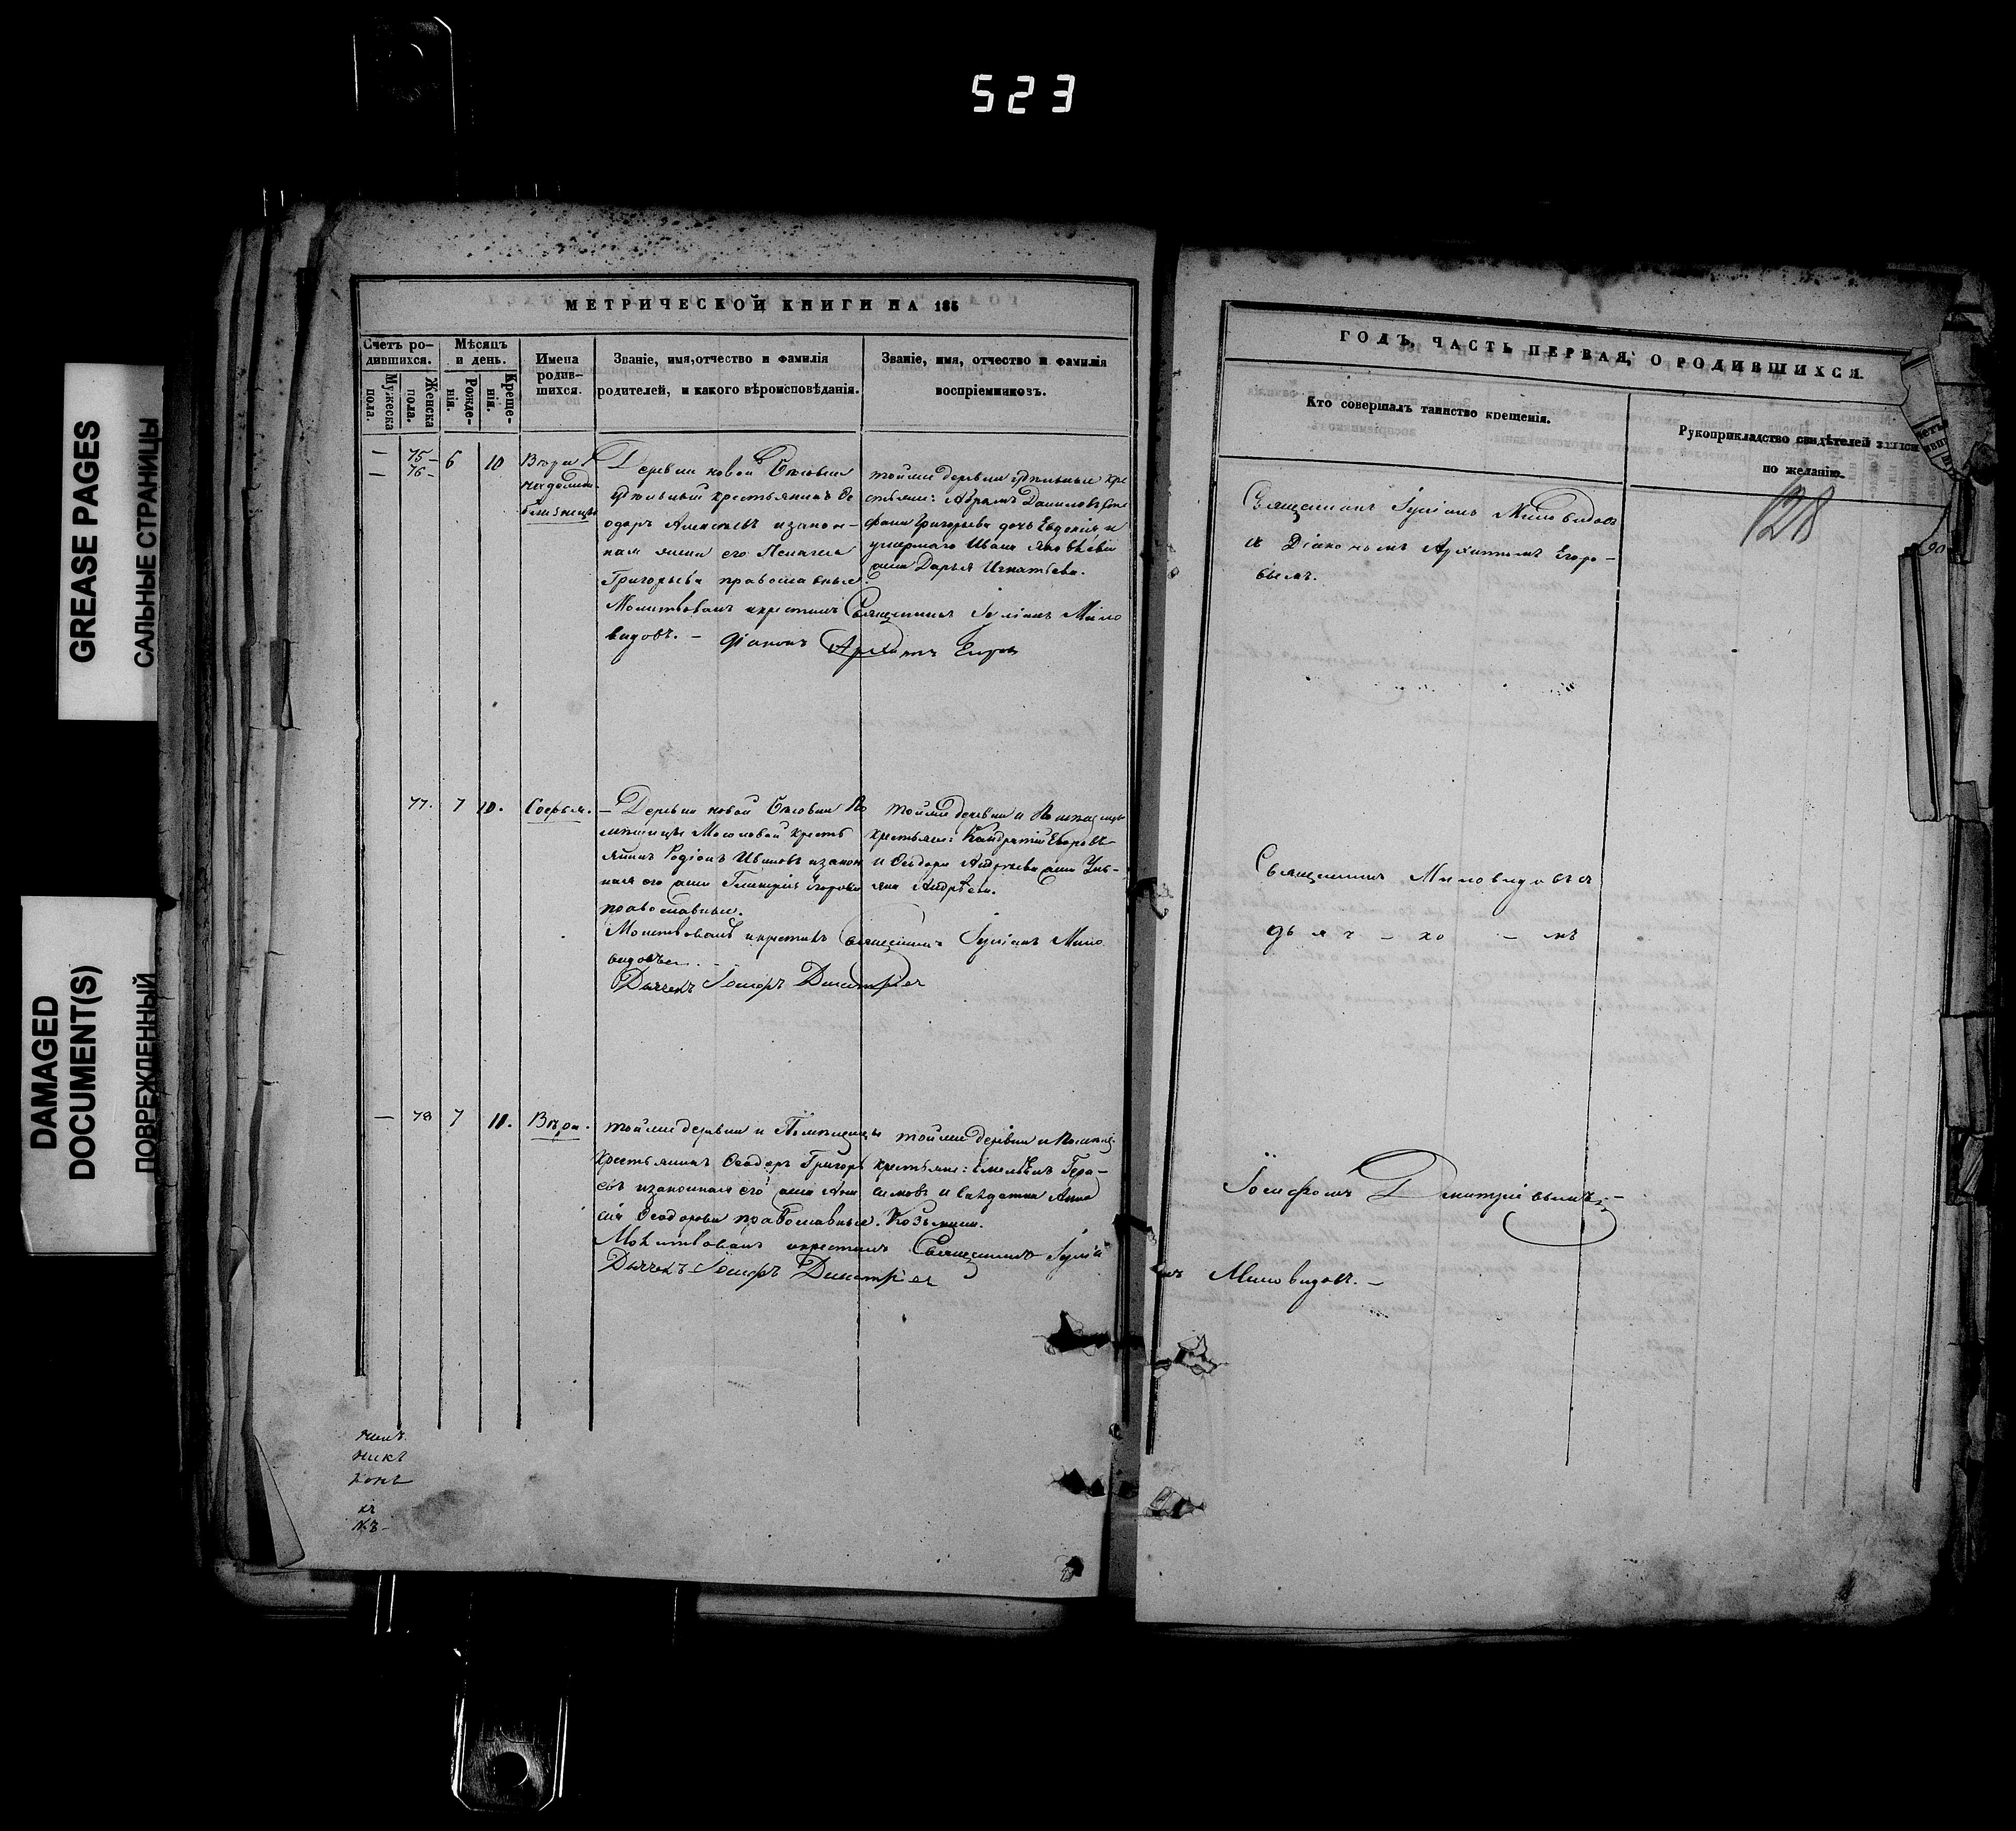 523
GREASE PAGES
САЛЬНЫЕ СТРАНИЦЫ
DAMAGED
DOCUMENT(S)
ПОВРЕЖДЕННЫЙ
МЕТРИЧЕСКОЙ КНИГИ НА 185
Счетъ ро-
дившихся.
Мужеска
пола
Женска
пола.
Мѣсяцъ
и день.
Рожде-
нія.
Креще-
нія.
Имена
родив-
шихся.
Званіе, имя, отчество и фамилія
родителей, и какого вѣроисповѣданія.
Званіе, имя, отчество и фамилія
воспріемниковъ.
— 75 — 6 10 Вѣра и
— 76 —
близнецы
Деревни новой
удѣльный крестьянинъ Ѳе
одоръ Алексѣевъ и закон-
ная жена его Пелагея
Григорьева православные.
Молитвовалъ и крестилъ Священникъ Іуліанъ Мило
видовъ. — Діаконъ Архипъ Егоровъ
тойже деревни удѣльные кре
стьяне: Абрамъ Даниловъ
Григорьева дочь Евдокія и
умершаго Ивана
жена Дарья Игнатьева.
77. 7 10. Софья.
— Деревни новой По
мѣщицы Мосоловой кресть
янинъ Родіонъ Ивановъ и закон
ная его жена Гликерія Егорова
православные.
Молитвовалъ и крестилъ Священникъ Іуліанъ Мило
видовъ.
Дьячекъ Іосифъ Димитріев
тойже деревни и Помѣщицы
крестьяне: Кондратій Егоровъ
и Ѳеодора Андреева жена Уль-
яна Андрѣева.
— 78 7 11. Вѣра.
тойже деревни и Помѣщицы
Крестьянинъ Ѳеодоръ Григорь
евъ и законная его жена
Ѳеодорова православные.
Молитвовалъ и крестилъ Священникъ Іуліа
Дьячекъ Іосифъ Димитріев
тойже деревни и Помѣщ.
крестьяне: Емельянъ Гера-
симовъ и солдатка Анна
Козьмина.
никъ
конъ
къ
ГОДЪ, ЧАСТЬ ПЕРВАЯ, О РОДИВШИХСЯ.
Кто совершалъ таинство крещенія.
Рукоприкладство свидѣтелей записи
по желанію.
128
Священникъ Іуліанъ Миловидовъ
съ Діакономъ Архипомъ Егоро-
вымъ.
Священникъ Миловидовъ съ
дьяч — ко — мъ
Іосифомъ Дмитріевымъ. —
нъ Миловидовъ. —